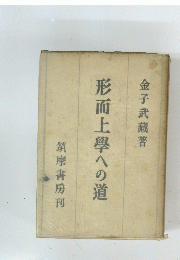 金子武藏著
形而上學への道
筑摩書房刊